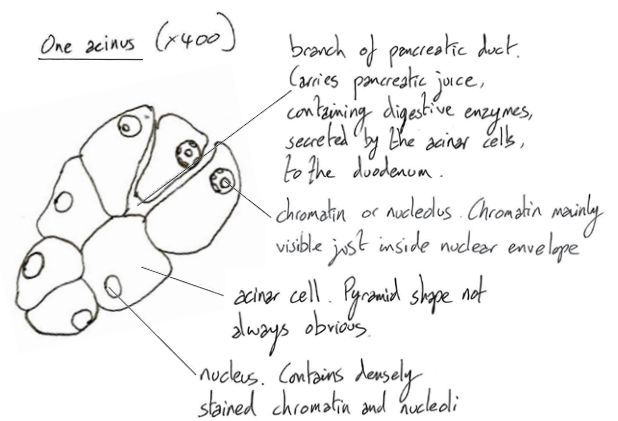 One acinus (×400)
branch of pancreatic duct.
Carries pancreatic juice,
containing digestive enzymes,
secreted by the acinar cells,
to the duodenum.
chromatin or nucleolus. Chromatin mainly
visible just inside nuclear envelope
acinar cell. Pyramid shape not
always obvious.
nucleus. Contains densely
stained chromatin and nucleoli